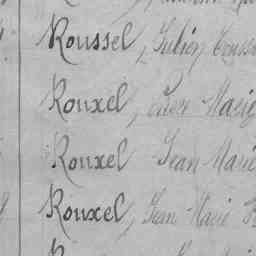 Roussel, Julien Touss
Rouxel, Pierre Marie
Rouxel Jean Marie
Rouxel, Jean Marie